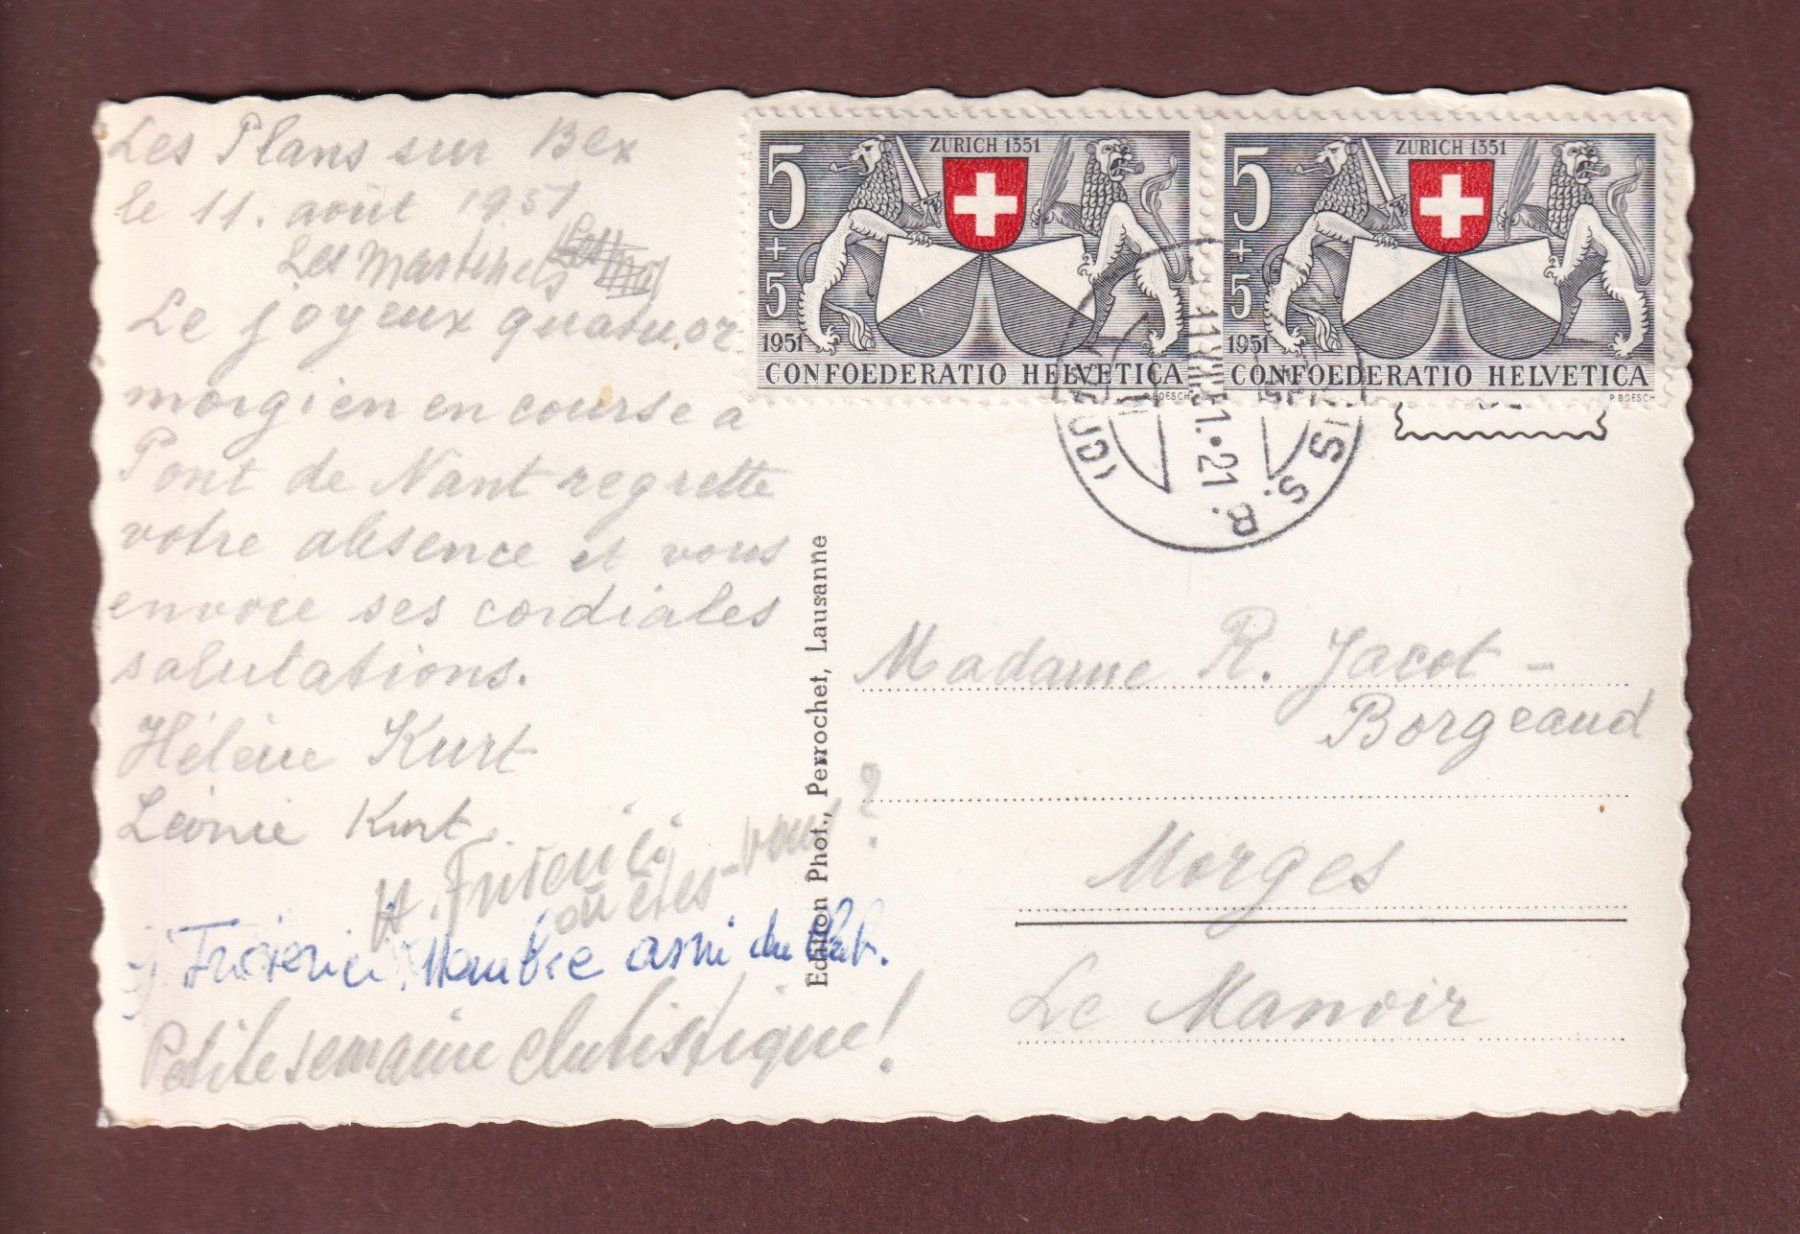 Les Plans sur Bex
le 11. août 1951
Les Martinets
Le joyeux quatuor
morgien en course a
Pont de Nant regrette
votre absence et vous
envoie ses cordiales
salutations.
Hélène Kurt
Léonie Kurt
H. Friderici
où êtes-vous?
J. Friderici, Membre ami du Club.
Petite semaine clubistique!
Edition Phot., Perrochet, Lausanne
5+5
ZURICH 1351
1951
CONFOEDERATIO HELVETICA
P. BOESCH
5+5
ZURICH 1351
1951
CONFOEDERATIO HELVETICA
P. BOESCH
S. B.
51.•21
Madame R. Jacot-
Borgeaud
Morges
Le Manoir